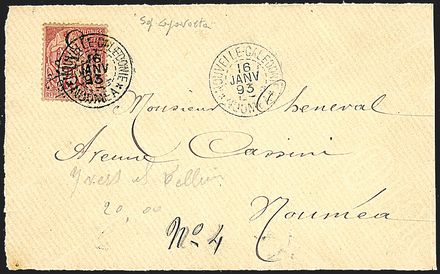 NOUVELLE-CALEDONIE
16
JANV
93
NOUMEA
NOUVELLE-CALEDONIE
16
JANV
93
NOUMEA
Monsieur Cheneval
Avenue Cassini
Yvert et Tellier
20,00
Nouméa
No 4